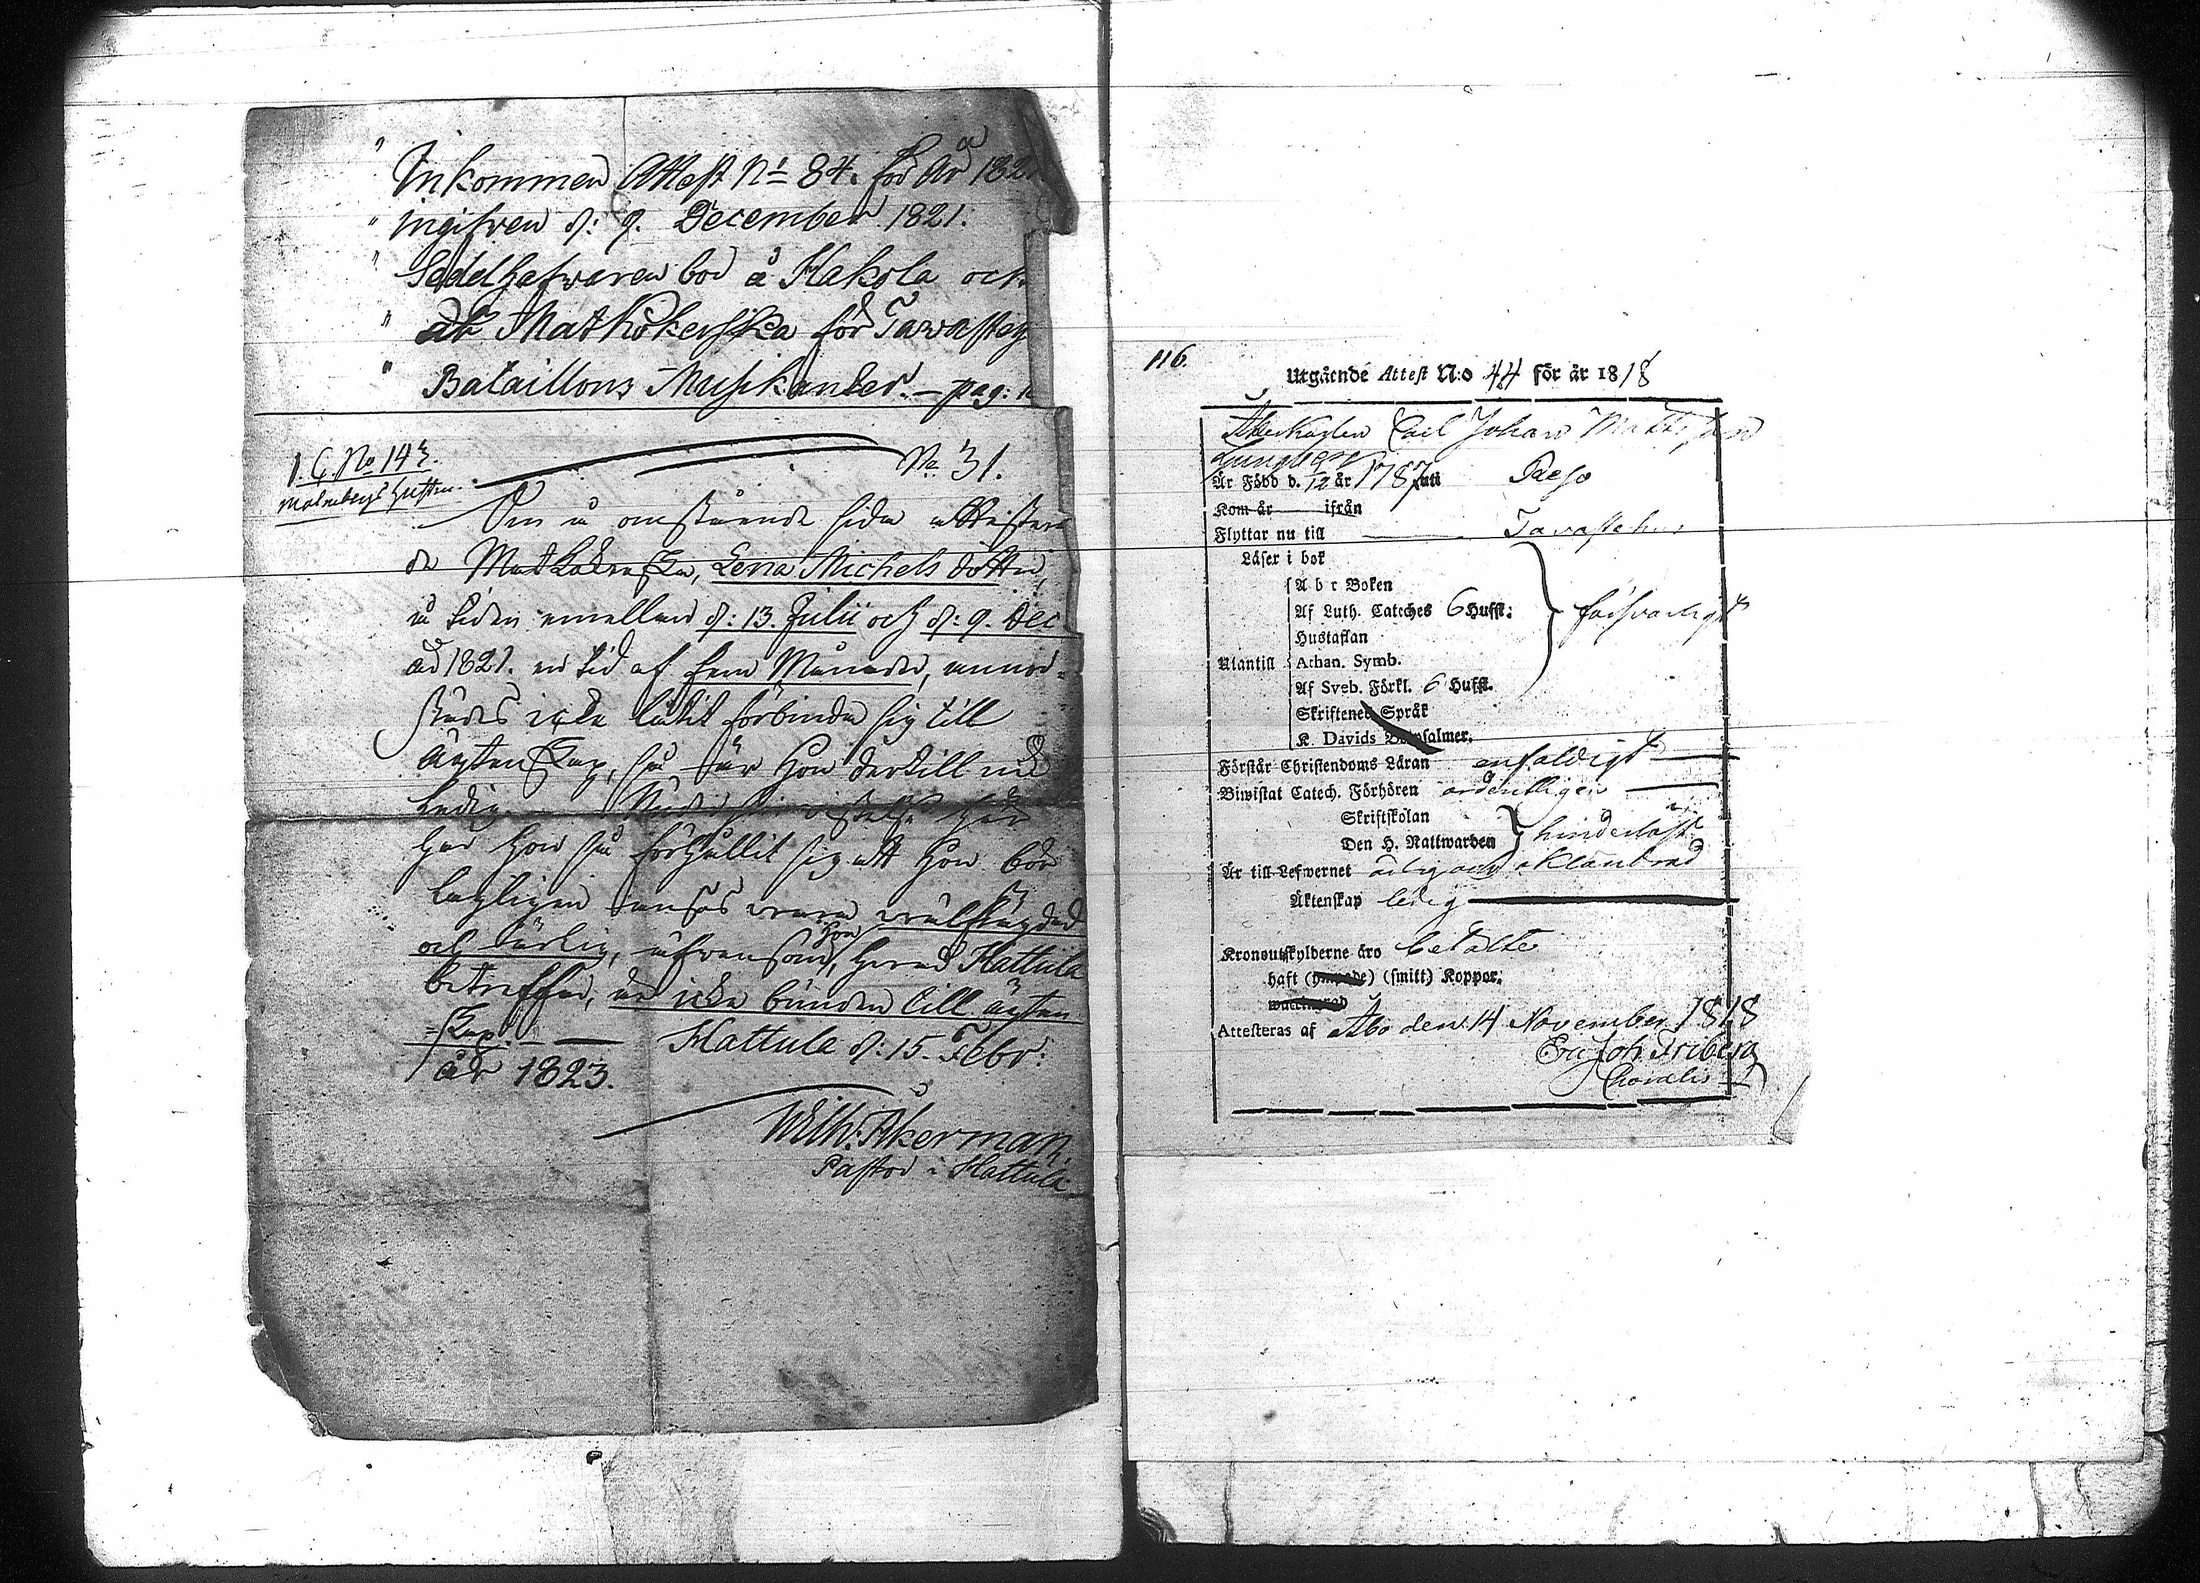 " Inkommen Attest No 84. för År 182
" ingifven d: 9. December 1821.
" Sedelhafvaren bor å Hakola och
" är Matkokerska för Tavasteh
" Bataillons Musikanter. — pag:
1. C. No 143.
No 31.
Den å omstående sida attestera
de Matkokerska, Lena Michels dotter,
å tiden emellan d: 13. Julii och d: 9. Dec
åd 1821. en tid af fem Månader, annor-
städes icke låtit förbinda sig till
ägtenskap, så är Hon dertill nu
ledig. Under sin vistelse här
har Hon så förhållit sig att Hon bör
lagligen anses vara välfrägdad
och ärlig, äfvensom, hvad Hattula
beträffar, är icke bunden till ägten
=skap. — Hattula d: 15. Febr:
år 1823.
Wilh. Åkerman,
Pastor i Hattula
116.
Utgående Attest N:o 44 för år 1818
Carl Johan Mattsson
Ljungberg
Är Född d. 9/12 år 1787 uti Reso
Kom år ifrån
Flyttar nu till Tavastehus
Läser i bok
A b c Boken
Af Luth. Cateches 6 Hufst. försvarligt
Hustaflan
Utantill Athan. Symb.
Af Sveb. Förkl. 6 Hufst.
Skriftenes Språk
K. Davids Botpsalmer.
Förstår Christendoms Läran enfaldigt
Biwistat Catech. Förhören ordentligen
Skriftskolan
Den H. Nattwarden hinderlöst
Är till Lefwernet ärlig och oklandrad
Äktenskap ledig
Kronoutskylderne äro betalte
haft (ympade) (smitt) Koppor.
Attesteras af Åbo den 14 November 1818
Er. Joh. Friberg